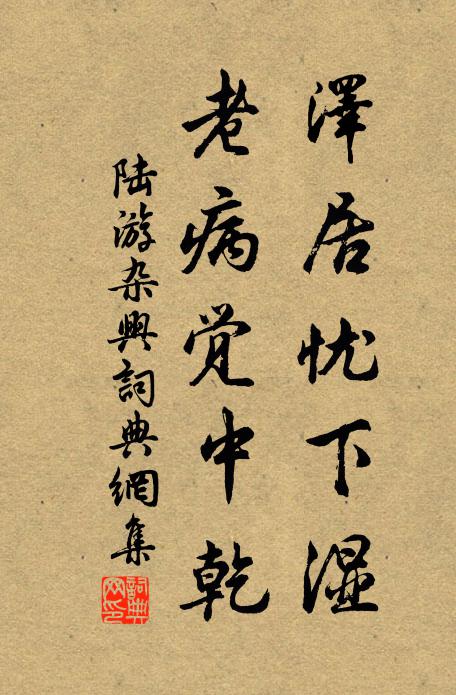 澤居忧下湿
老病觉中乾
陆游杂興詞典網集
詞典网印